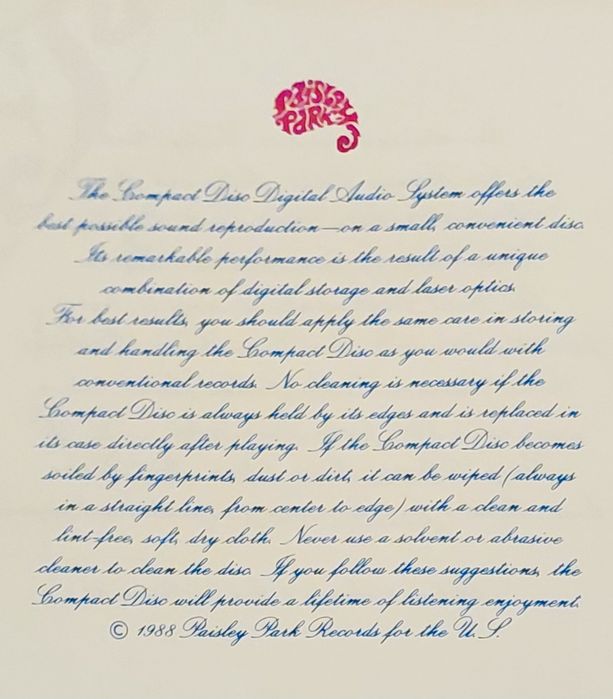 Paisley
Park
The Compact Disc Digital Audio System offers the
best possible sound reproduction—on a small, convenient disc.
Its remarkable performance is the result of a unique
combination of digital storage and laser optics.
For best results, you should apply the same care in storing
and handling the Compact Disc as you would with
conventional records. No cleaning is necessary if the
Compact Disc is always held by its edges and is replaced in
its case directly after playing. If the Compact Disc becomes
soiled by fingerprints, dust or dirt, it can be wiped (always
in a straight line, from center to edge) with a clean and
lint-free, soft, dry cloth. Never use a solvent or abrasive
cleaner to clean the disc. If you follow these suggestions, the
Compact Disc will provide a lifetime of listening enjoyment.
© 1988 Paisley Park Records for the U.S.